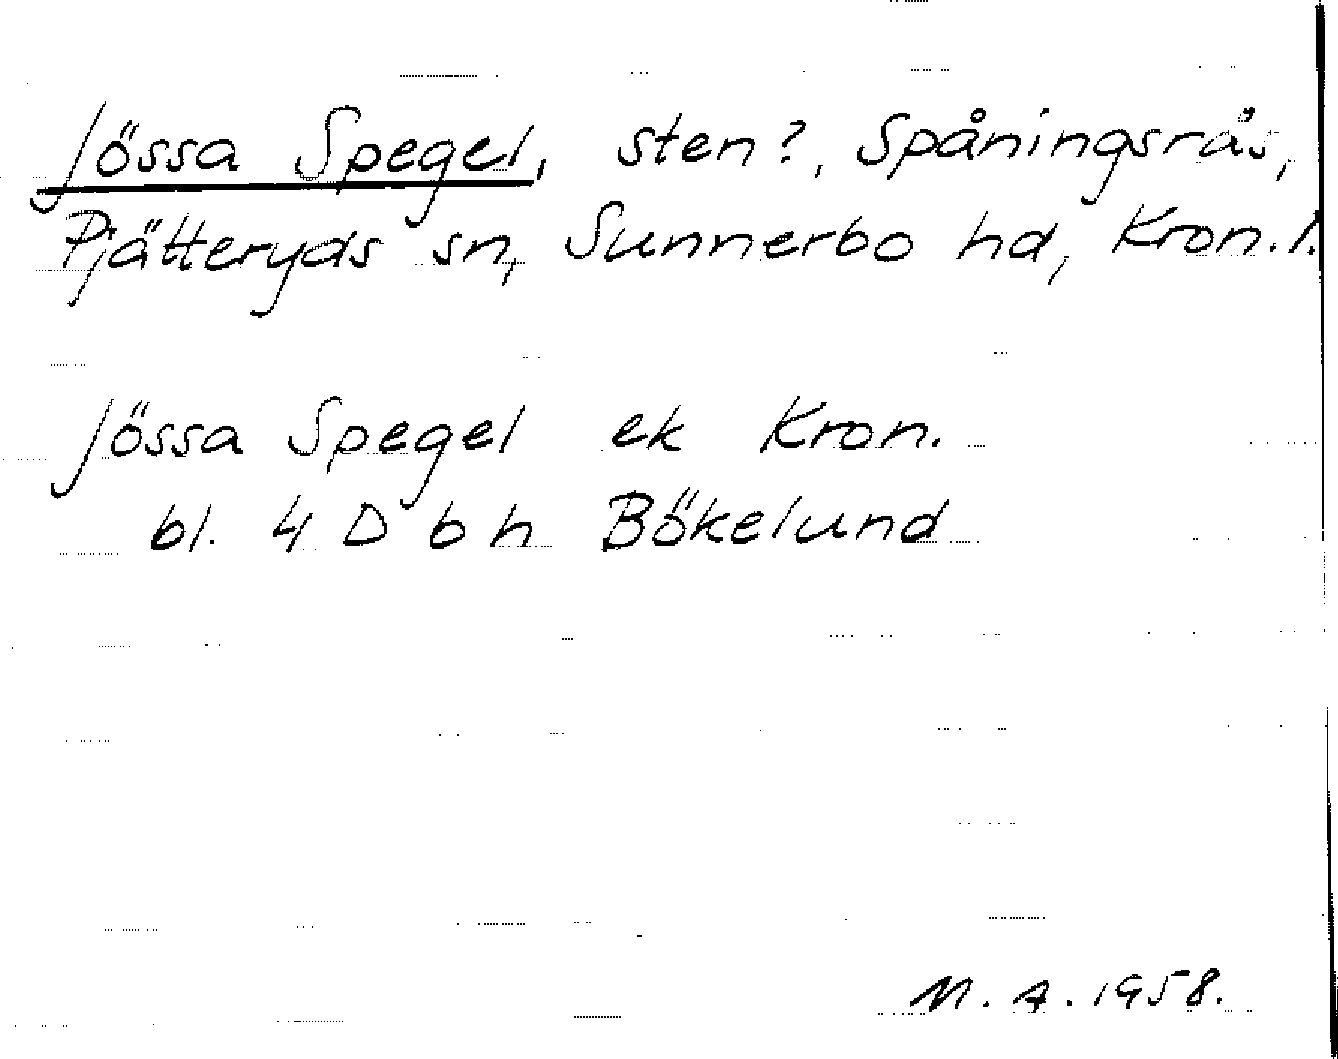 Jössa Spegel, sten?, Spåningsrås,
Pjätteryds sn, Sunnerbo hd, Kron. l.
Jössa Spegel ek Kron.
bl. 4 D b h Bökelund
M. A. 1958.